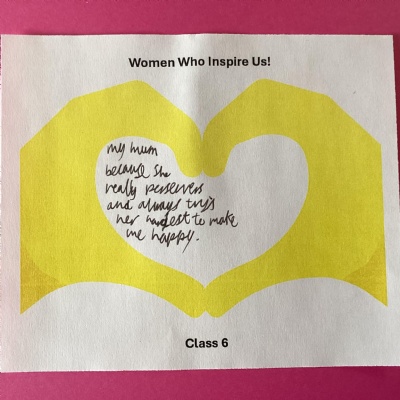 Women Who Inspire Us!
my mum
because she
really persevers
and always trys
her hardest to make
me happy.
Class 6